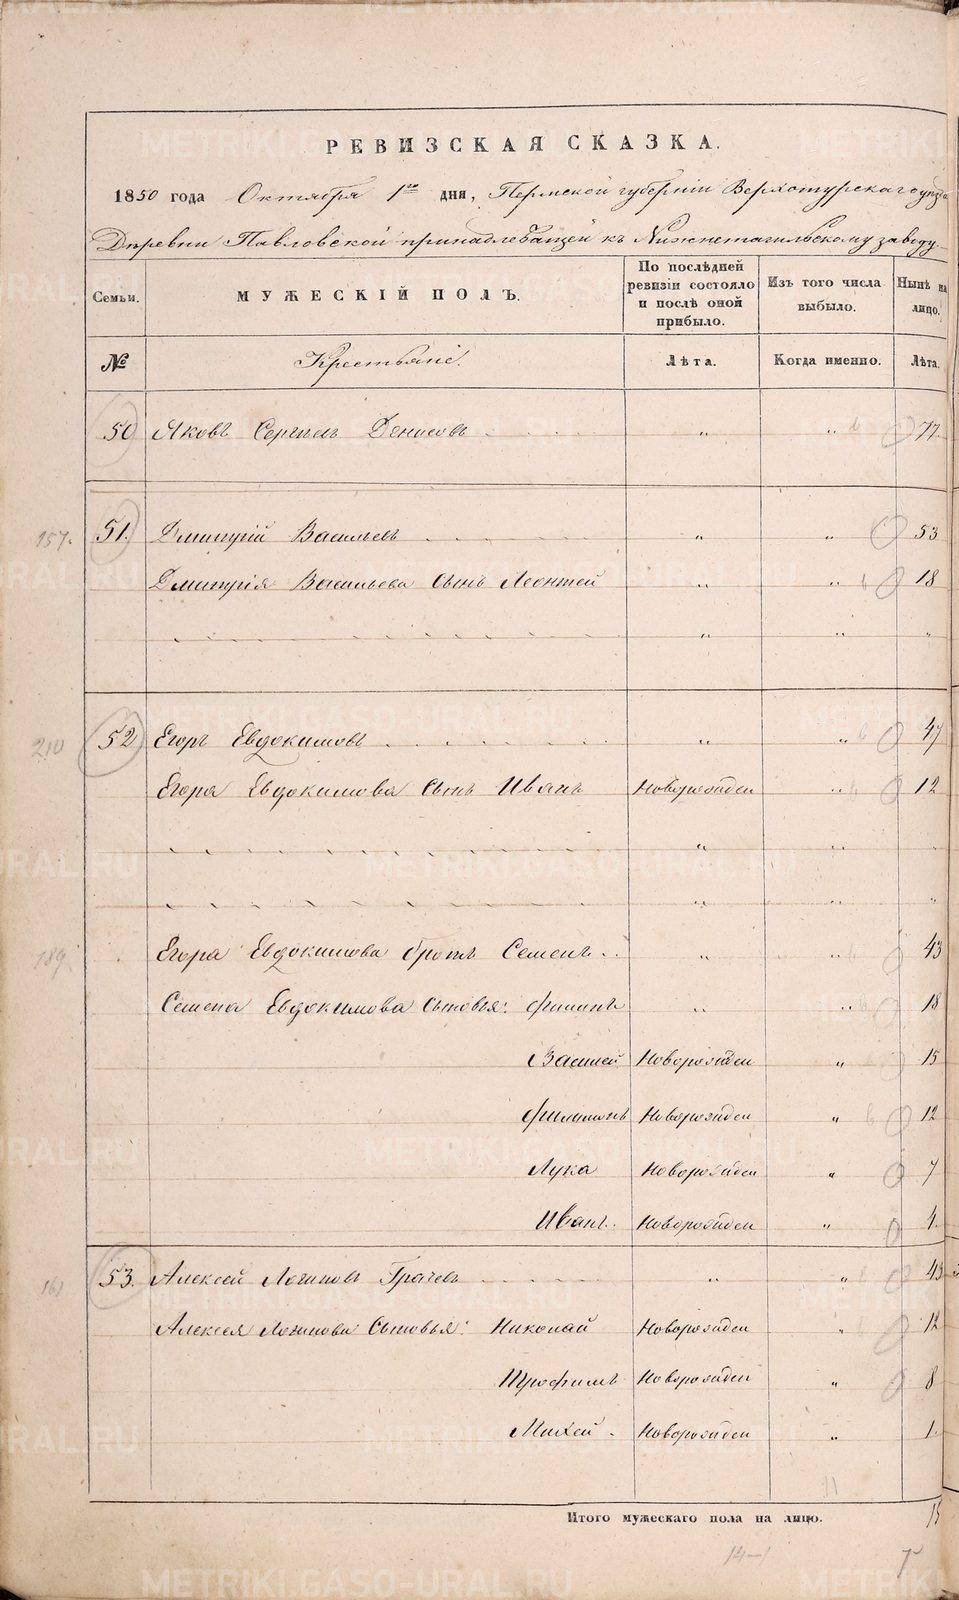 РЕВИЗСКАЯ СКАЗКА.
1850 года Октября 1го дня, Пермской губерніи Верхотурскаго уѣзда
Деревни Павловской принадлежащей къ Нижнетагильскому заводу
Семьи. МУЖЕСКІЙ ПОЛЪ. По послѣдней ревизіи состояло и послѣ оной прибыло. Изъ того числа выбыло. Нынѣ на лицо.
№ Крестьяне. Лѣта. Когда именно. Лѣта.
50 Яковъ Сергѣевъ Денисовъ „ „ 77
157. 51. Дмитрій Васильевъ „ „ 53
Дмитрія Васильева Сынъ Леонтей „ „ 18
„ „ „
210 52 Егоръ Евдокимовъ „ „ 47
Егора Евдокимова Сынъ Иванъ Новорожден „ 12
„ „ „
„ „ „
189. Егора Евдокимова братъ Семенъ „ „ 43
Семена Евдокимова Сыновья: Филипъ „ „ 18
Василей Новорожден „ 15
Филимонъ Новорожден „ 12
Лука Новорожден „ 7
Иванъ. Новорожден „ 4
161 53. Алексей Логиновъ Грачевъ „ „ 43
Алексея Логинова Сыновья: Николай Новорожден „ 12
Трофимъ Новорожден „ 8
Михей. Новорожден „ 1
11
Итого мужескаго пола на лицо. 15
14-1
METRIKI.GASO-URAL.RU